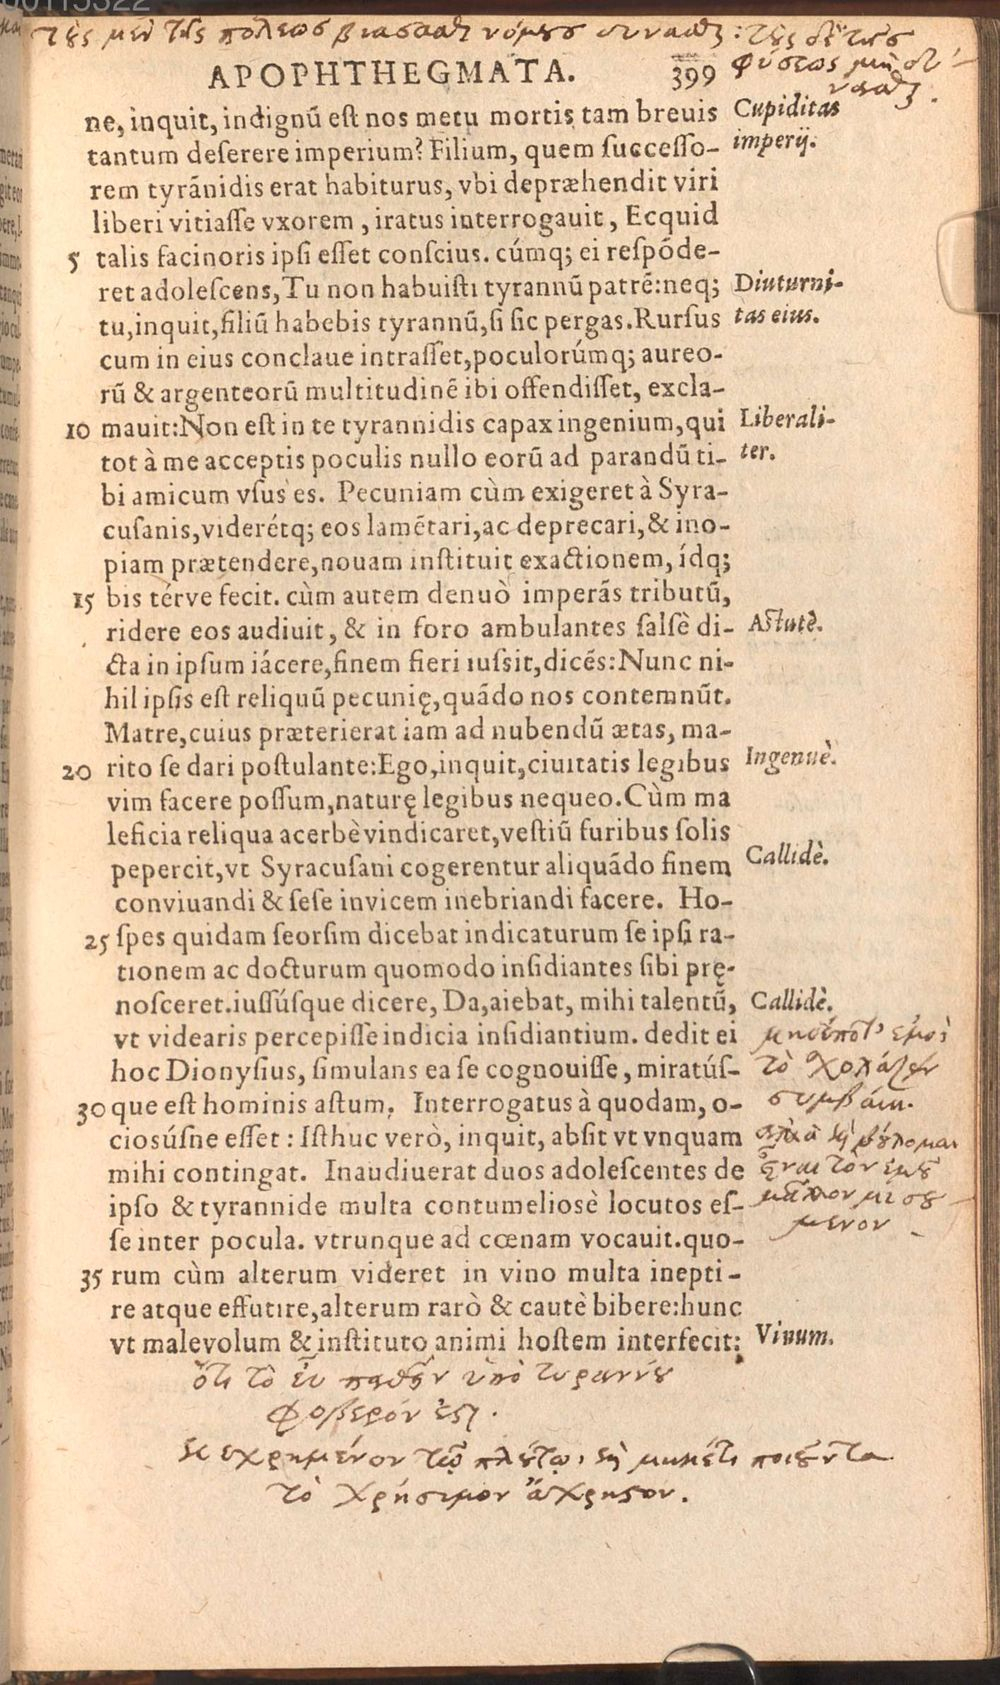 τοὺς μὲν τῆς πόλεως βιάσασθαι νόμους δύνασθαι : τοὺς δὲ τῆς
φύσεως μὴ δύ-
νασθαι.
APOPHTHEGMATA. 399
ne, inquit, indignũ est nos metu mortis tam breuis Cupiditas
tantum deserere imperium? Filium, quem successo- imperij.
rem tyrãnidis erat habiturus, vbi depræhendit viri
liberi vitiasse vxorem, iratus interrogauit, Ecquid
5 talis facinoris ipsi esset conscius. cúmq; ei respõde-
ret adolescens, Tu non habuisti tyrannũ patrẽ: neq; Diuturni-
tu, inquit, filiũ habebis tyrannũ, si sic pergas. Rursus tas eius.
cum in eius conclaue intrasset, poculorúmq; aureo-
rũ & argenteorũ multitudinẽ ibi offendisset, excla-
10 mauit: Non est in te tyrannidis capax ingenium, qui Liberali-
tot à me acceptis poculis nullo eorũ ad parandũ ti- ter.
bi amicum vsus es. Pecuniam cùm exigeret à Syra-
cusanis, viderétq; eos lamẽtari, ac deprecari, & ino-
piam prætendere, nouam instituit exactionem, ídq;
15 bis térve fecit. cùm autem denuò imperãs tributũ,
ridere eos audiuit, & in foro ambulantes salsè di- Astutè.
cta in ipsum iácere, finem fieri iussit, dicẽs: Nunc ni-
hil ipsis est reliquũ pecunię, quãdo nos contemnũt.
Matre, cuius præterierat iam ad nubendũ ætas, ma-
20 rito se dari postulante: Ego, inquit, ciuitatis legibus Ingenuè.
vim facere possum, naturę legibus nequeo. Cùm ma
leficia reliqua acerbè vindicaret, vestiũ furibus solis
pepercit, vt Syracusani cogerentur aliquãdo finem Callidè.
conviuandi & sese invicem inebriandi facere. Ho-
25 spes quidam seorsim dicebat indicaturum se ipsi ra-
tionem ac docturum quomodo insidiantes sibi prę-
nosceret. iussúsque dicere, Da, aiebat, mihi talentũ, Callidè.
vt videaris percepisse indicia insidiantium. dedit ei μηδέποτ' ἐμοὶ
hoc Dionysius, simulans ea se cognouisse, miratús- τὸ σχολάζειν
30 que est hominis astum. Interrogatus à quodam, o- συμβαίη.
ciosúsne esset : Isthuc verò, inquit, absit vt vnquam ἀλλὰ καὶ βούλομαι
mihi contingat. Inaudiuerat duos adolescentes de εἶναι τὸν ἐμοῦ
ipso & tyrannide multa contumeliosè locutos es- μᾶλλον μισού-
se inter pocula. vtrunque ad cœnam vocauit. quo- μενον
35 rum cùm alterum videret in vino multa inepti-
re atque effutire, alterum rarò & cautè bibere: hunc
vt malevolum & instituto animi hostem interfecit: Vinum.
ὅτι τὸ εὖ παθεῖν ὑπὸ τυράννου
φοβερόν ἐστι.
κεχρημένον τῷ πλούτῳ, καὶ μηκέτι ποιοῦντα
τὸ χρήσιμον ἄχρηστον.